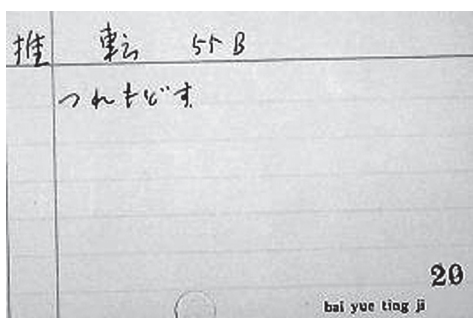 推 転 55B
つれもどす
20
bai yue ting ji